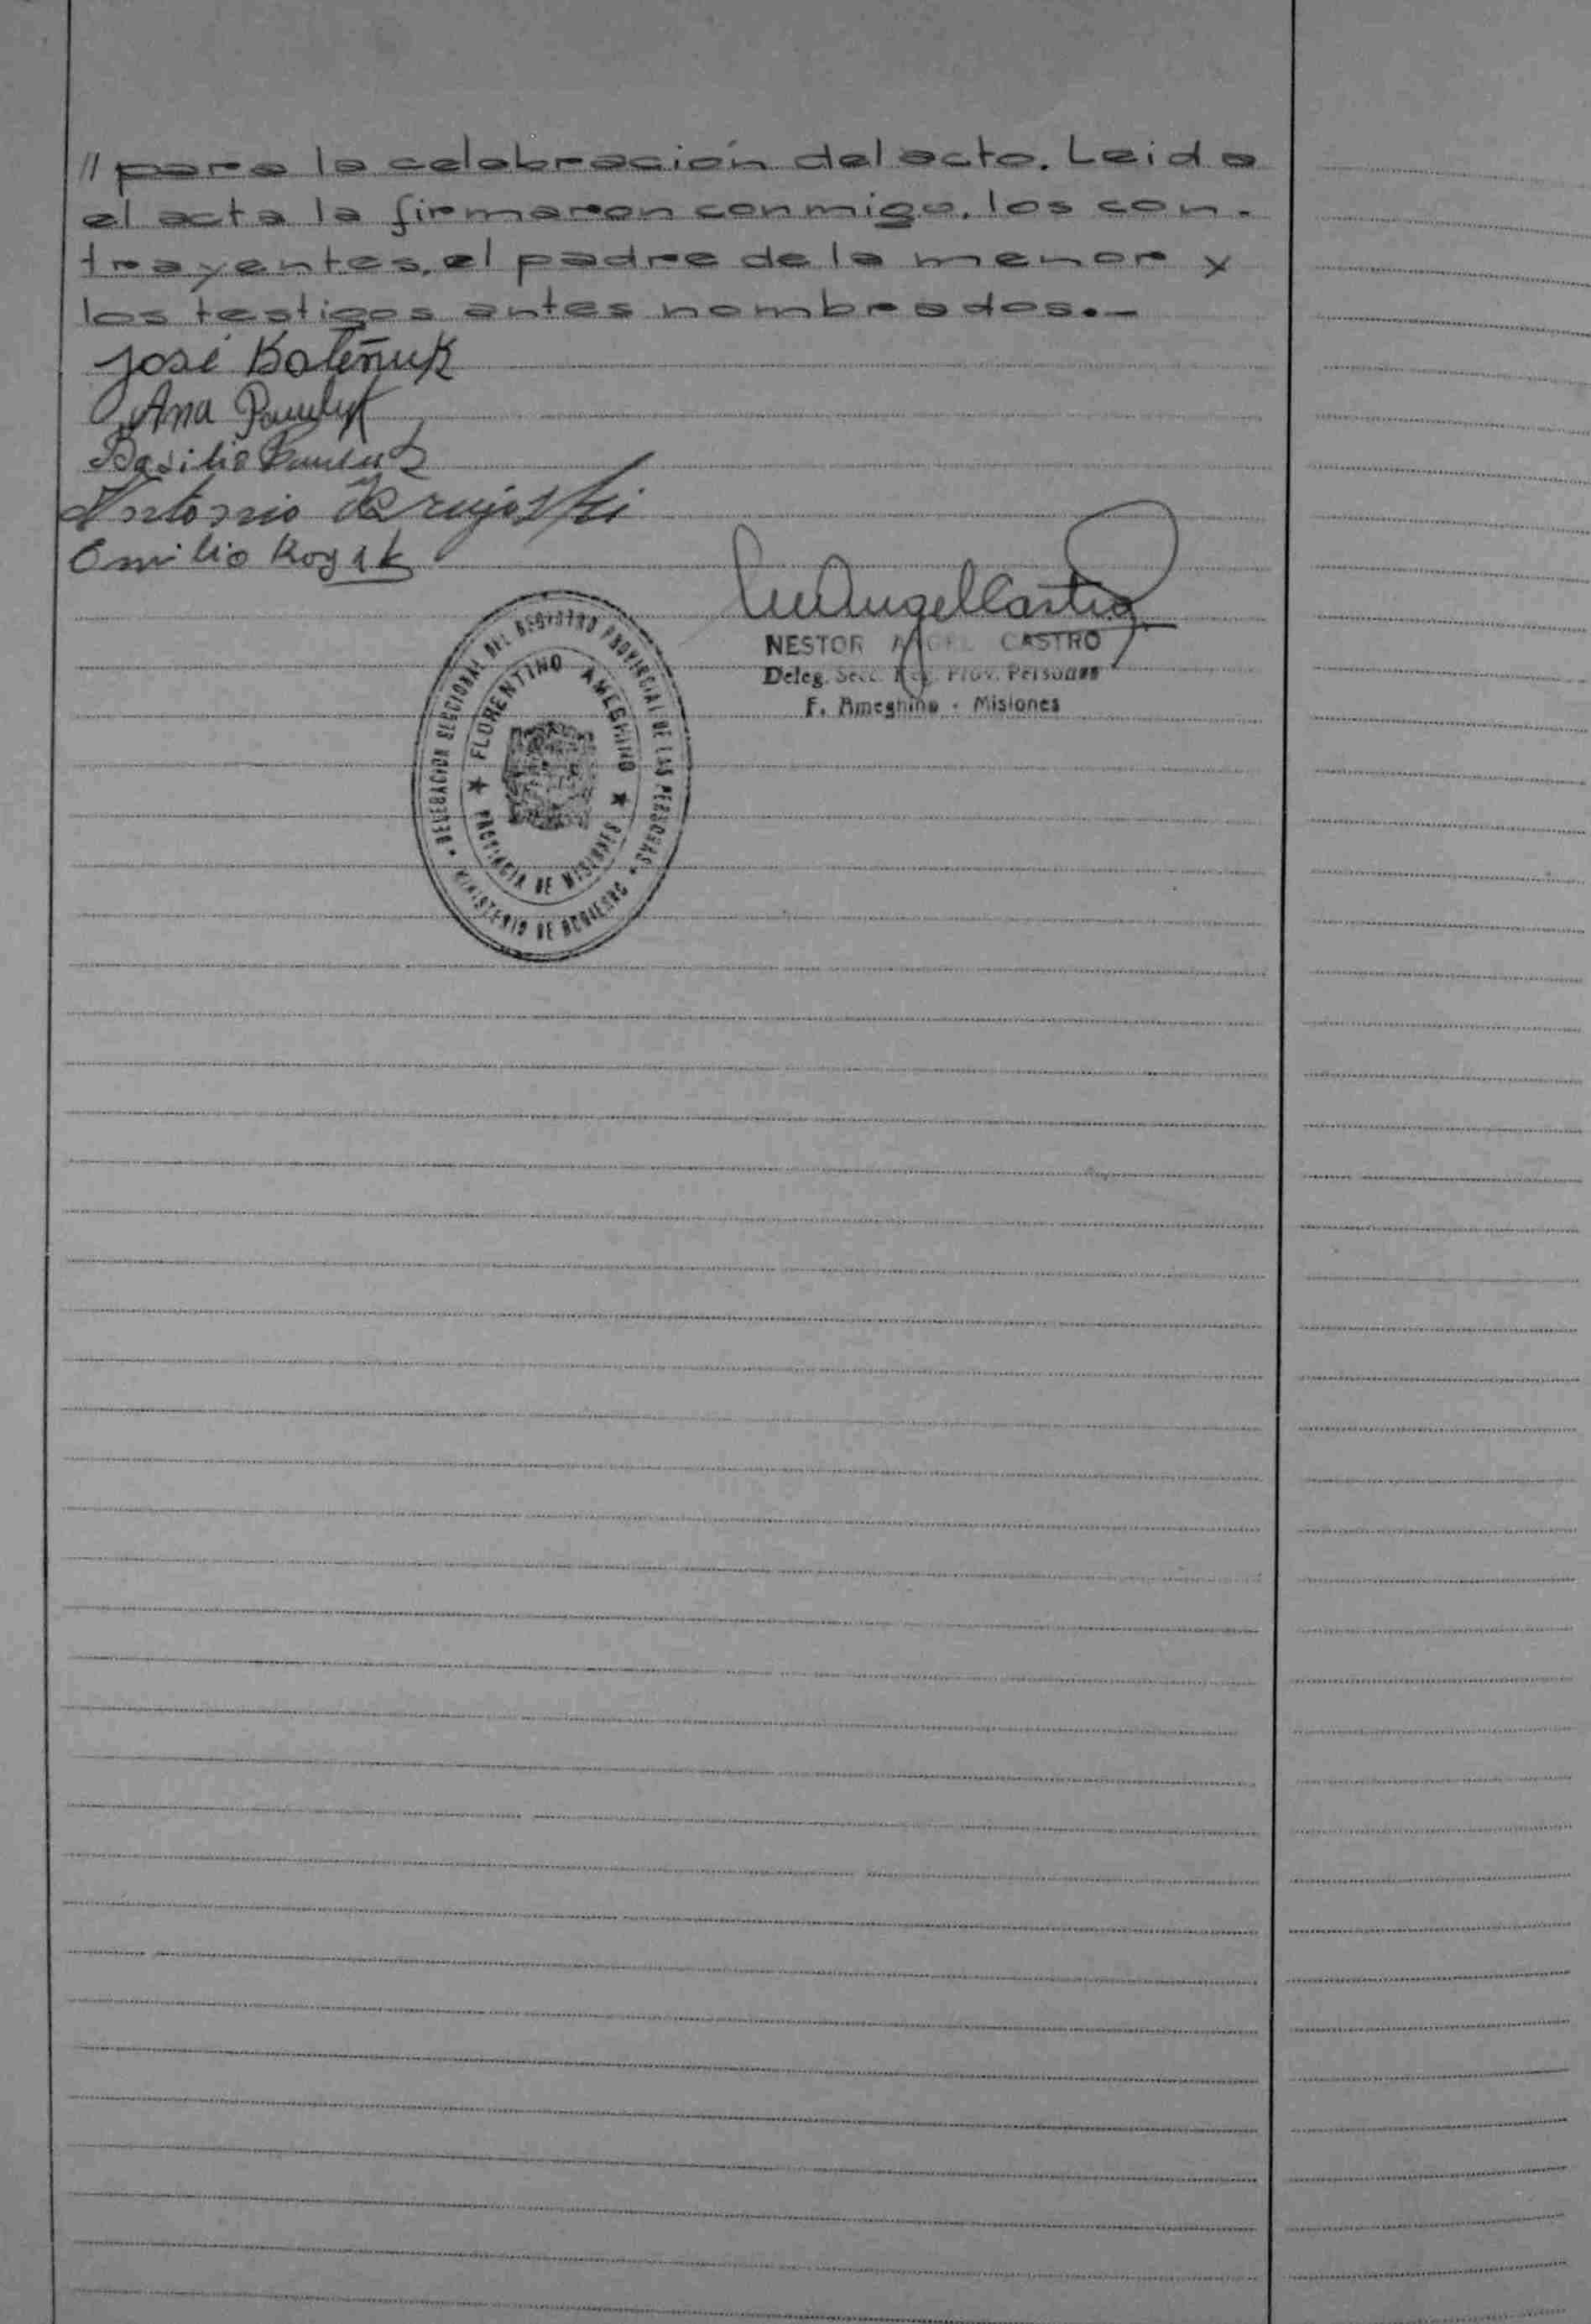 // para la celebración del acto. Leida
el acta la firmaron conmigo, los con-
trayentes, el padre de la menor y
los testigos antes nombrados.-
José
Ana
Basilio
Antonio
Emilio
NESTOR ANGEL CASTRO
Deleg. Secc. Reg. Prov. Personas
F. Ameghino - Misiones
DELEGACION SECCIONAL DEL REGISTRO PROVINCIAL DE LAS PERSONAS
MINISTERIO DE GOBIERNO
FLORENTINO AMEGHINO
PROVINCIA DE MISIONES